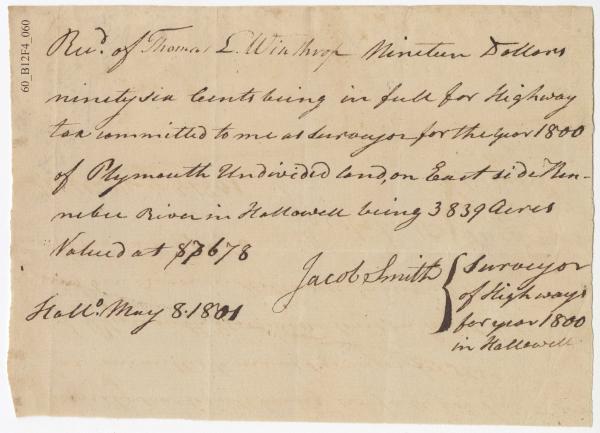 60_B12F4_060
Recd. of Thomas L. Winthrop Nineteen Dollars
ninety six Cents being in full for Highway
tax committed to me as surveyor for the year 1800
of Plymouth Undivided land, on East side Ken-
nebec River in Hallowell being 3839 Acres
Valued at $7678
Jacob Smith { Surveyor
of Highways
for year 1800
in Hallowell
Hallo. May 8. 1801